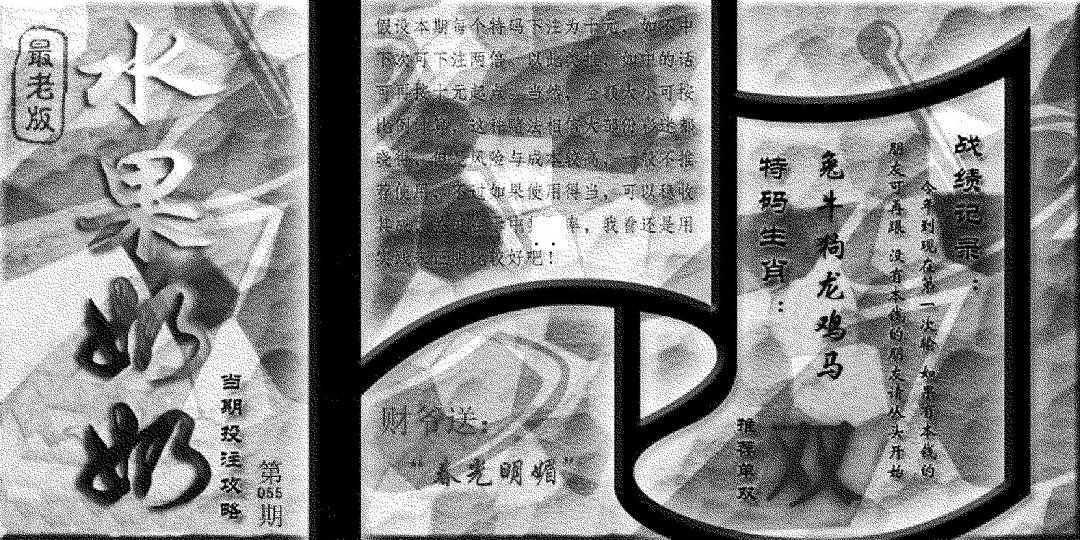 最老版
水果奶奶
当期投注攻略
第
055
期
假设本期每个特码下注为十元，如不中
下次可下注两倍，以此类推，如中的话
可再按十元起点。当然，金额大小可按
比例
这种赌法相信大部份彩迷都
晓得，但是风险与成本较高，一般不推
荐使用，不过如果使用得当，可以稳收
率，我看还是用
比较好吧！
财爷送：
“春光明媚”
战绩记录：
今年到现在第一次输 如果有本钱的
朋友可再跟 没有本钱的朋友请从头开始
兔牛狗龙鸡马
特码生肖：
推荐单双
双